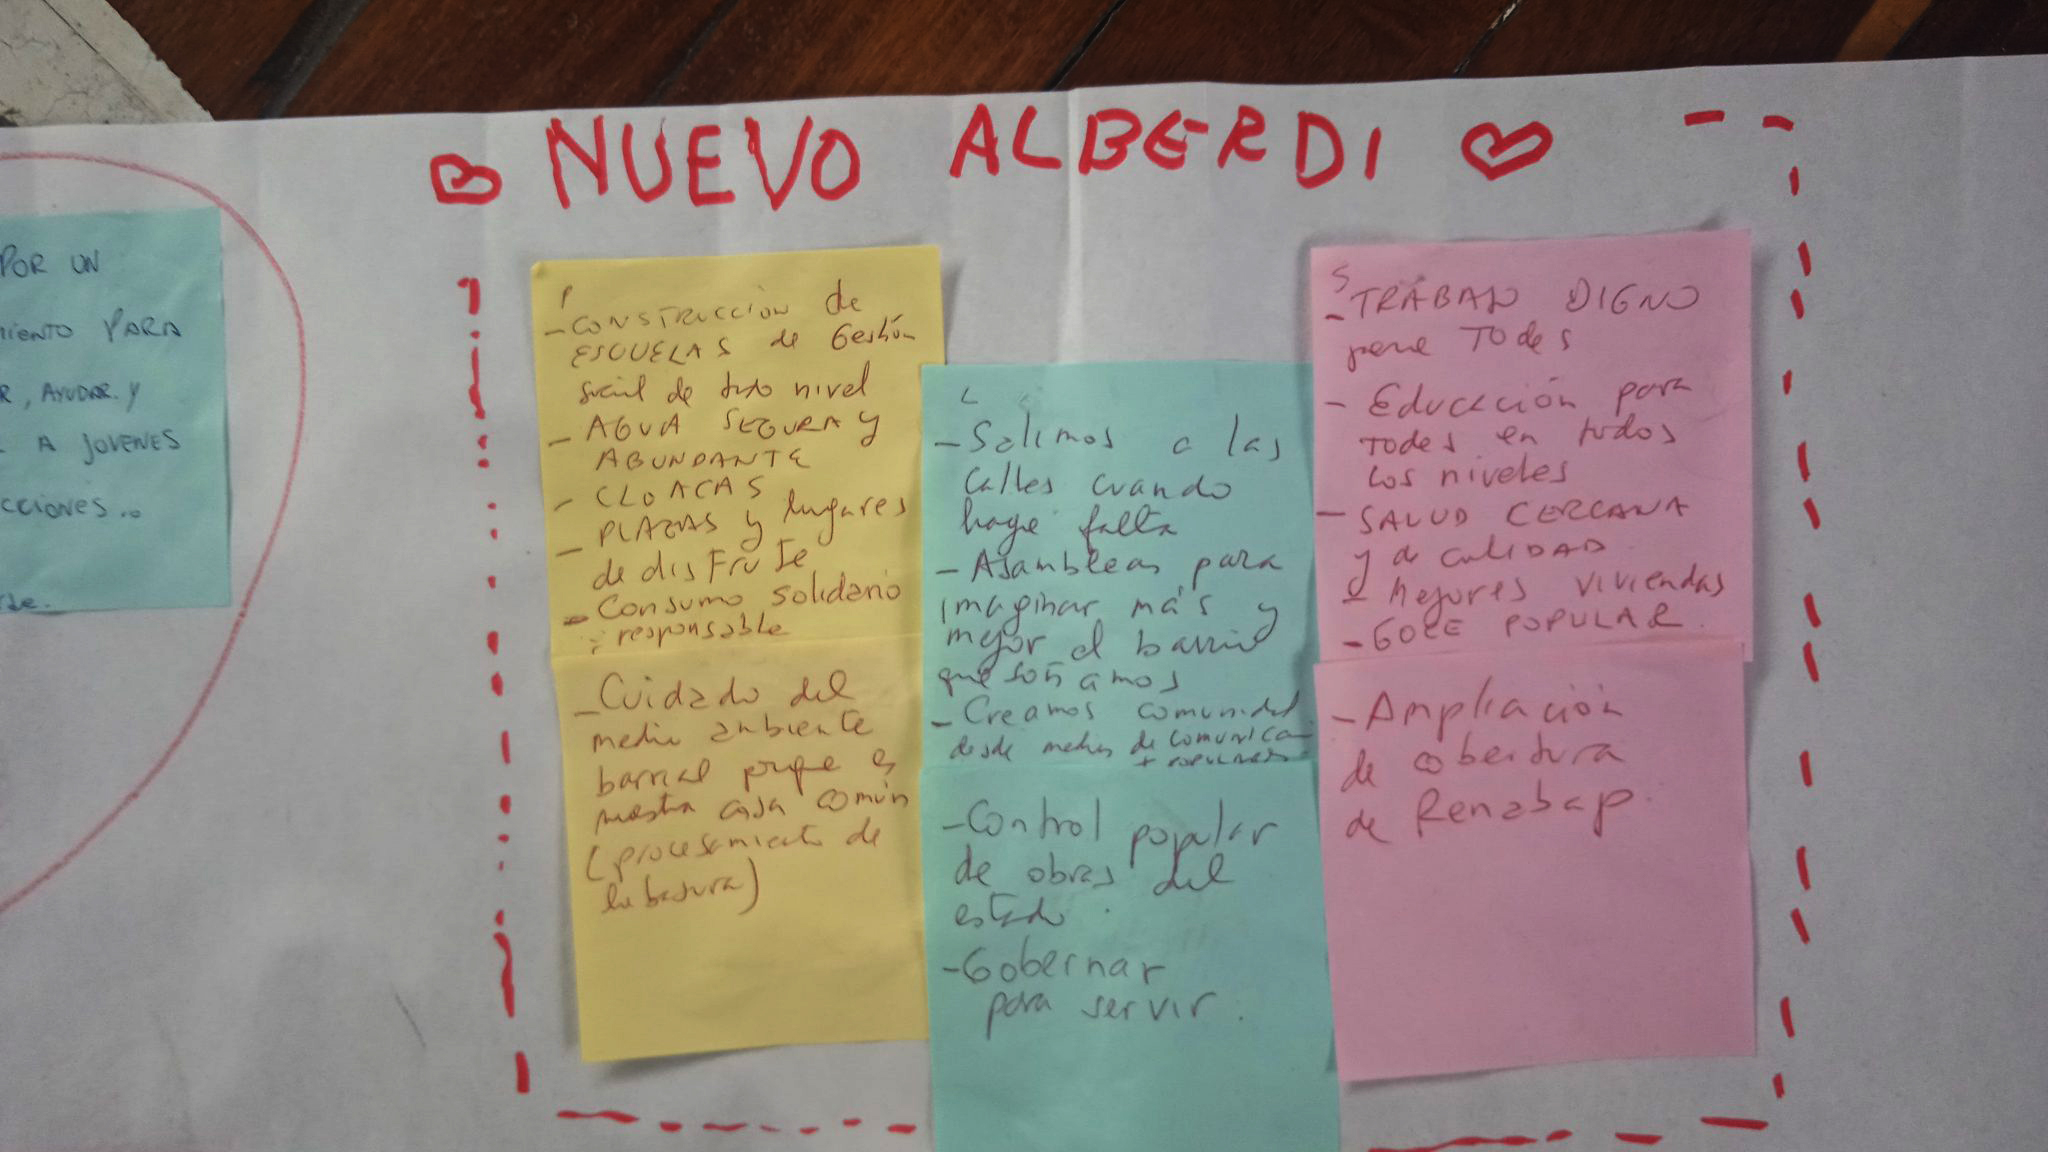 NUEVO ALBERDI
POR UN
MIENTO PARA
R, AYUDAR Y
A JOVENES
CCIONES...
P
- CONSTRUCCIÓN de
ESCUELAS de Gestión
social de todo nivel
- AGUA SEGURA y
ABUNDANTE
- CLOACAS
- PLAZAS y lugares
de disfrute
- Consumo solidario
responsable
- Cuidado del
medio ambiente
barrial porque es
nuestra casa común
(procesamiento de
la basura)
L
- Salimos a las
calles cuando
haga falta
- Asambleas para
imaginar más y
mejor el barrio
que soñamos
- Creamos comunidad
desde medios de comunica
+ populares
- Control popular
de obras del
estado.
- Gobernar
para servir.
S
- TRABAJO DIGNO
para TODES
- Educación para
TODES en todos
los niveles
- SALUD CERCANA
y de calidad
- Mejores viviendas
- GOCE POPULAR.
- Ampliación
de cobertura
de Renabap.